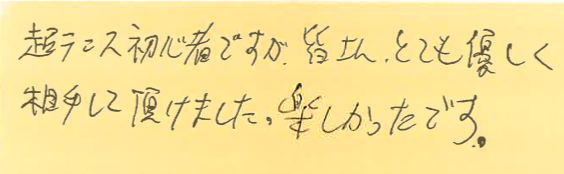 超テニス初心者ですが、皆さん、とても優しく
相手して頂けました。楽しかったです。